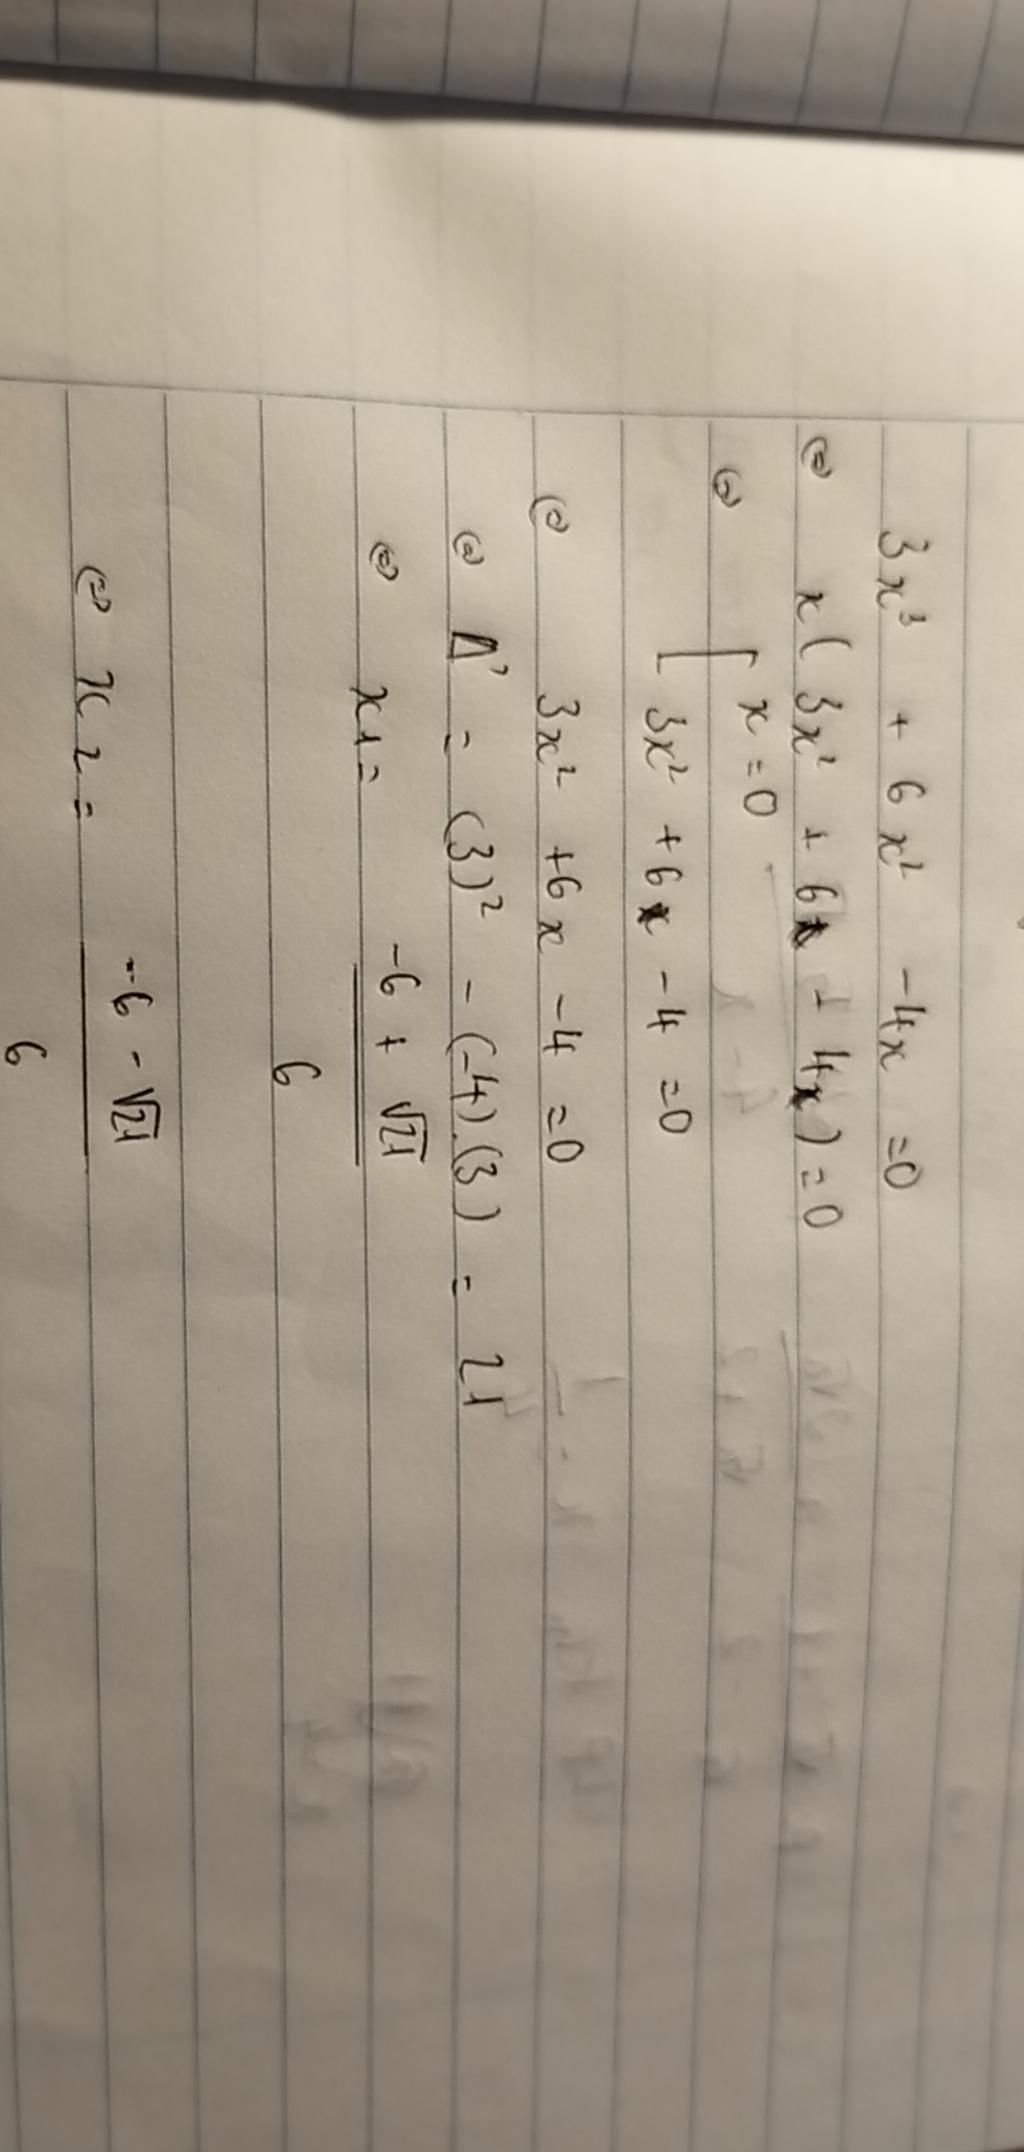 3x³ + 6x² - 4x = 0
⇔ x(3x² + 6x - 4x) = 0
⇔ [ x = 0
3x² + 6x - 4 = 0
⇔ 3x² + 6x - 4 = 0
⇔ Δ' = (3)² - (-4).(3) = 21
⇔ x1 = -6 + √21
6
⇔ x2 = -6 - √21
6